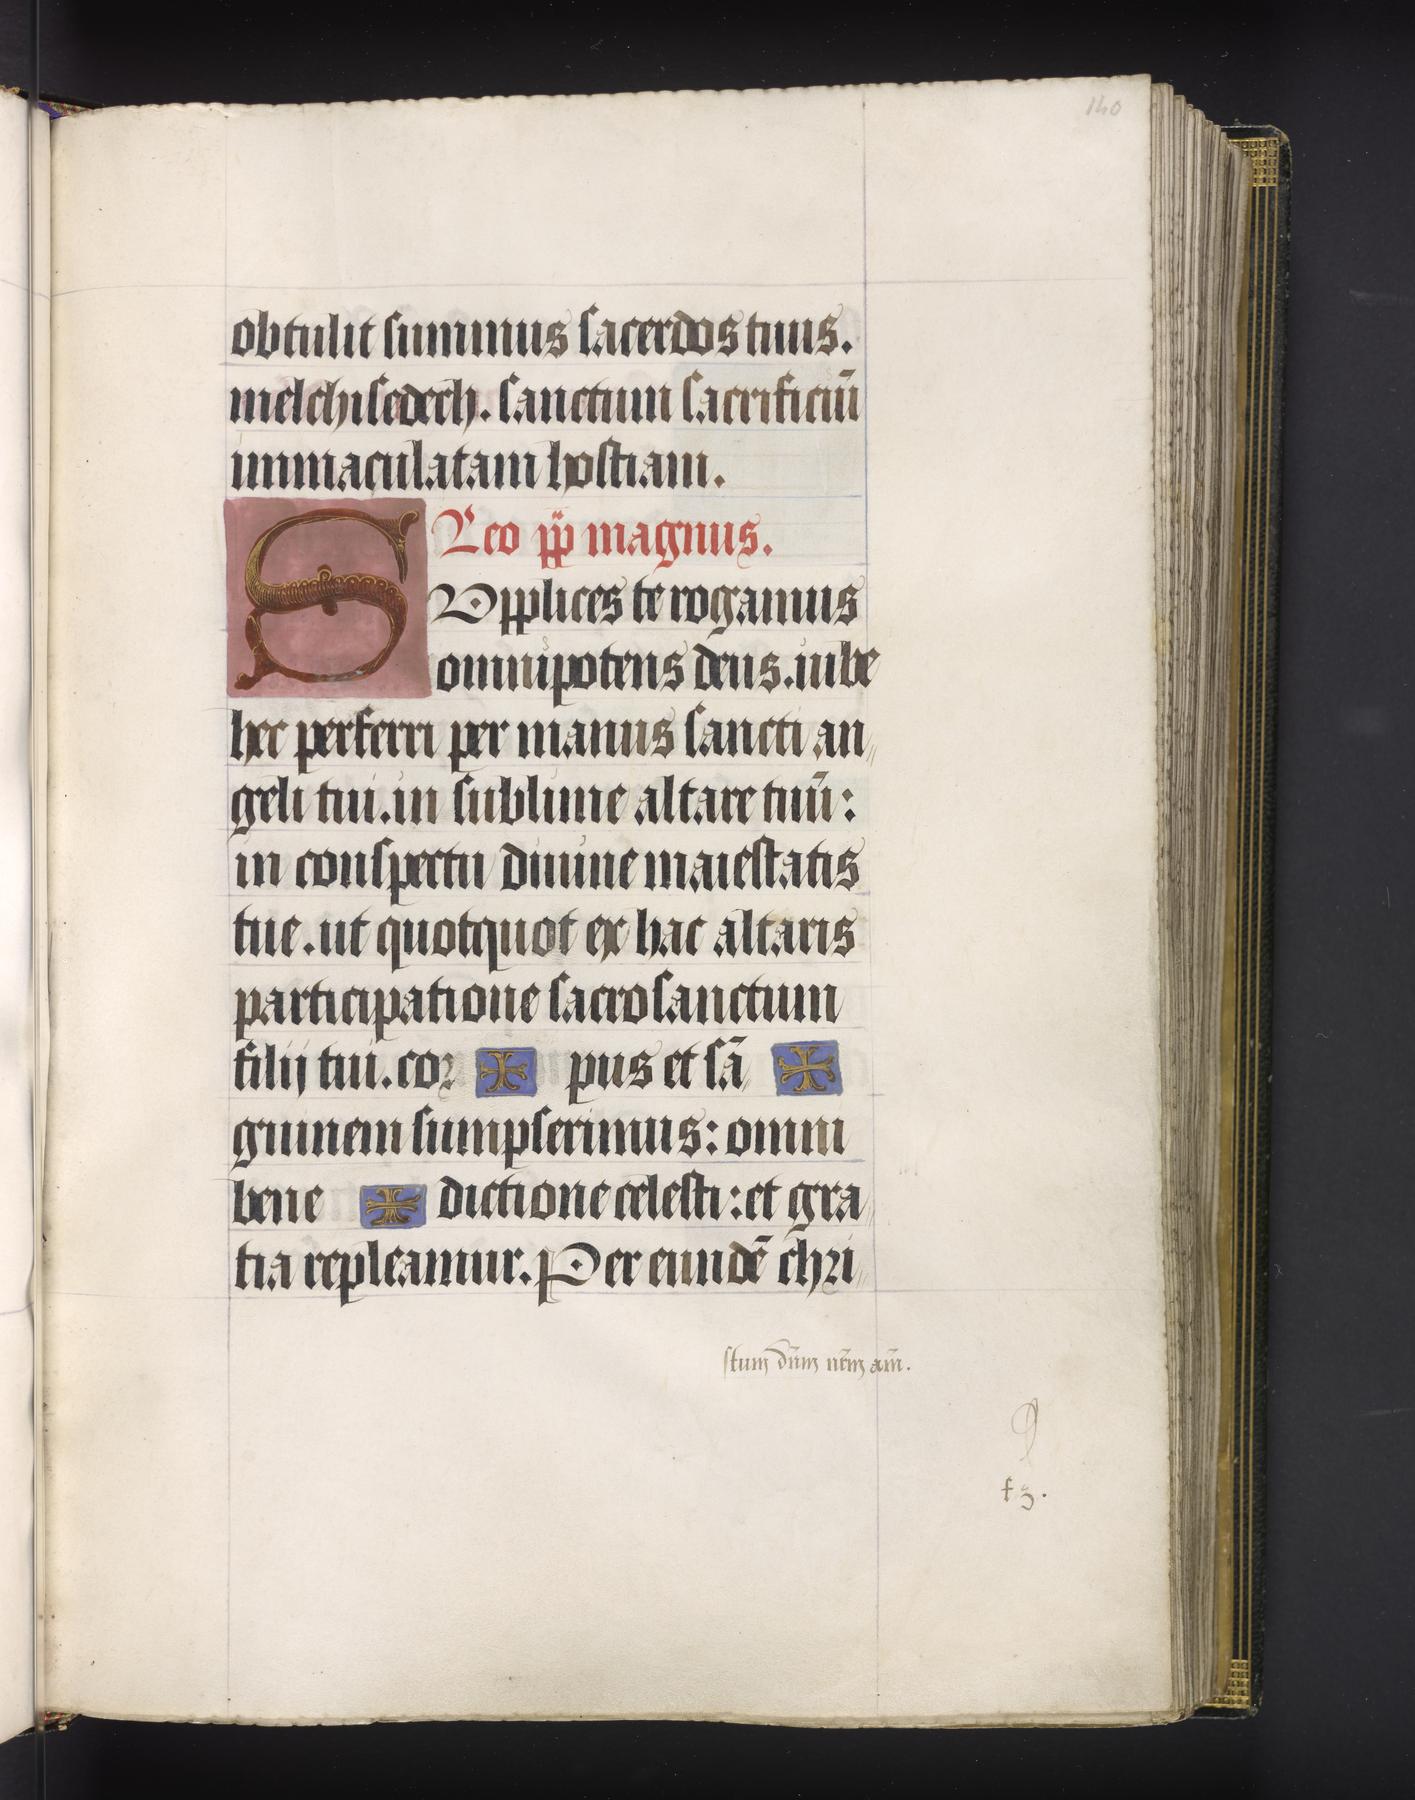 140
obtulit summus sacerdos tuus.
melchisedech. sanctum sacrificiū
immaculatam hostiam.
Leo pp̄ magnus.
SVpplices te rogamus
omnipotens deus. iube
hec perferri per manus sancti an
geli tui. in sublime altare tuū:
in conspectu diuine maiestatis
tue. ut quotquot ex hac altaris
participatione sacrosanctum
filij tui. cor ✠ pus et sā ✠
guinem sumpserimus: omni
bene ✠ dictione celesti: et gra
tia repleamur. Per eundē chri
stum dn̄m nr̄m am̄.
f 3.